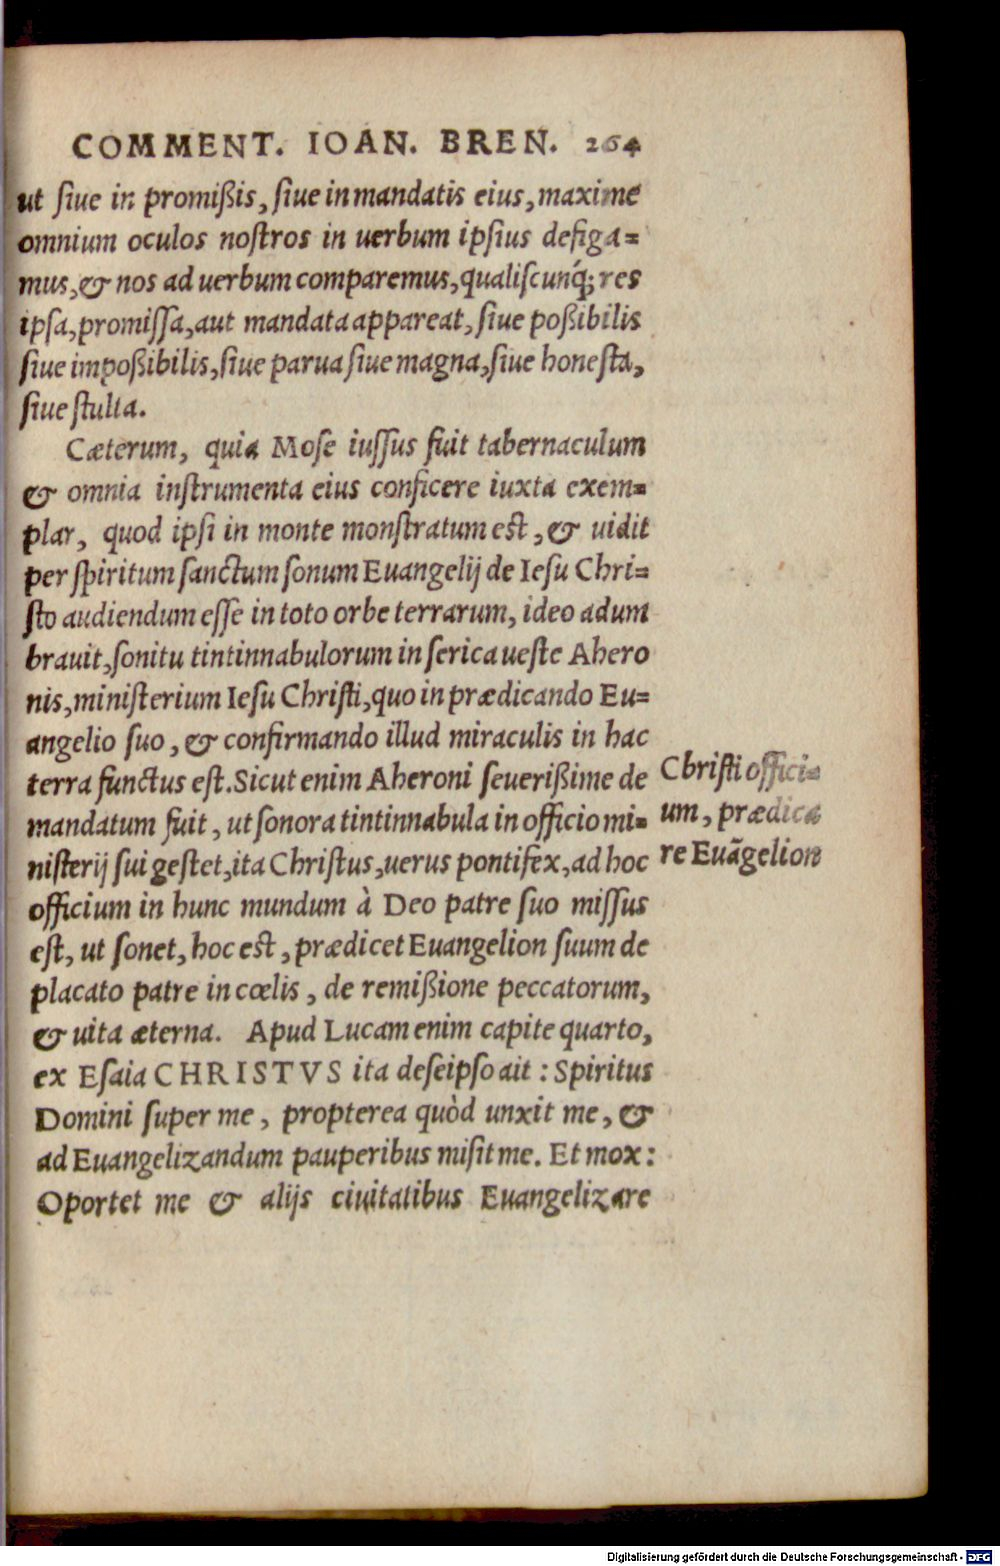 COMMENT. IOAN. BREN. 264
ut siue in promißis, siue in mandatis eius, maxime
omnium oculos nostros in uerbum ipsius defiga=
mus, & nos ad uerbum comparemus, qualiscunq́; res
ipsa, promissa, aut mandata appareat, siue poßibilis
siue impoßibilis, siue parua siue magna, siue honesta,
siue stulta.
Cæterum, quia Mose iussus fuit tabernaculum
& omnia instrumenta eius conficere iuxta exem=
plar, quod ipsi in monte monstratum est, & uidit
per spiritum sanctum sonum Euangelij de Iesu Chri=
sto audiendum esse in toto orbe terrarum, ideo adum
brauit, sonitu tintinnabulorum in serica ueste Ahero
nis, ministerium Iesu Christi, quo in prædicando Eu=
angelio suo, & confirmando illud miraculis in hac
terra functus est. Sicut enim Aheroni seuerißime de
mandatum fuit, ut sonora tintinnabula in officio mi=
nisterij sui gestet, ita Christus, uerus pontifex, ad hoc
officium in hunc mundum à Deo patre suo missus
est, ut sonet, hoc est, prædicet Euangelion suum de
placato patre in cœlis, de remißione peccatorum,
& uita æterna. Apud Lucam enim capite quarto,
ex Esaia CHRISTVS ita de seipso ait : Spiritus
Domini super me, propterea quòd unxit me, &
ad Euangelizandum pauperibus misit me. Et mox :
Oportet me & alijs ciuitatibus Euangelizare
Christi offici=
um, prædica
re Euãgelion
Digitalisierung gefördert durch die Deutsche Forschungsgemeinschaft - DFG